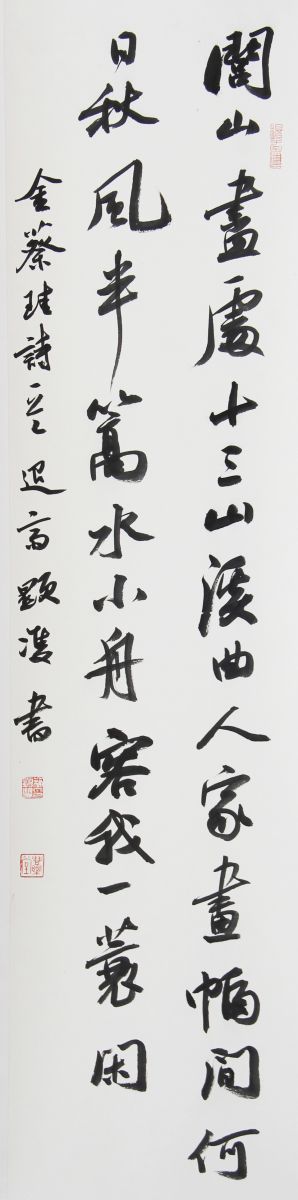 閭山盡處十三山溪曲人家畫幅間何
日秋風半篙水小舟容我一蓑閑
金蔡珪詩一首 顯 書